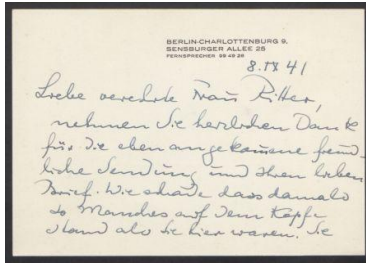 BERLIN-CHARLOTTENBURG 9,
SENSBURGER ALLEE 25
FERNSPRECHER 99 49 29
8. IX 41
Liebe verehrte Frau Ritter,
nehmen Sie herzlichen Dank
für die eben angekommene freund-
liche Sendung und Ihren lieben
Brief. Wie schade dass damals
so Manches auf dem Kopfe
stand als Sie hier waren. Sie